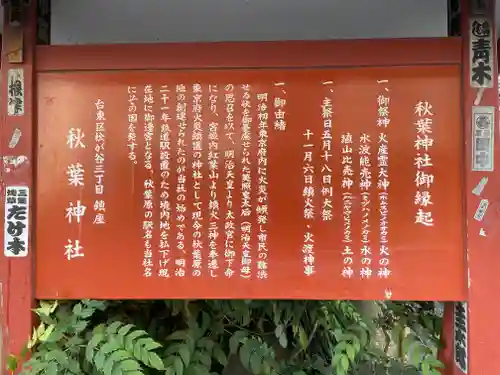 秋葉神社御縁起
一、御祭神 火産霊大神(ホムスビノオオカミ)火の神
水波能売神(ミズハノメノカミ)水の神
埴山比売神(ハニヤマヒメノカミ)土の神
一、主祭日五月十八日例大祭
十一月六日鎮火祭・火渡神事
一、御由緒
明治初年東京府内に火災が頻発し市民の難渋
せる状を御憂慮せられた英照皇太后(明治天皇御母)
の思召を以て、明治天皇より太政官に御下命
になり、宮城内紅葉山より鎮火三神を奉遷し
東京府火災鎮護の神社として現今の秋葉原の
地に創建せられたのが当社の始めである。明治
二十一年鉄道駅設置のため境内地を払下げ現
在地に御遷宮となる。秋葉原の駅名も当社名
にその因を発する。
台東区松が谷三丁目鎮座
秋葉神社
青木
根津
三里
たけ本